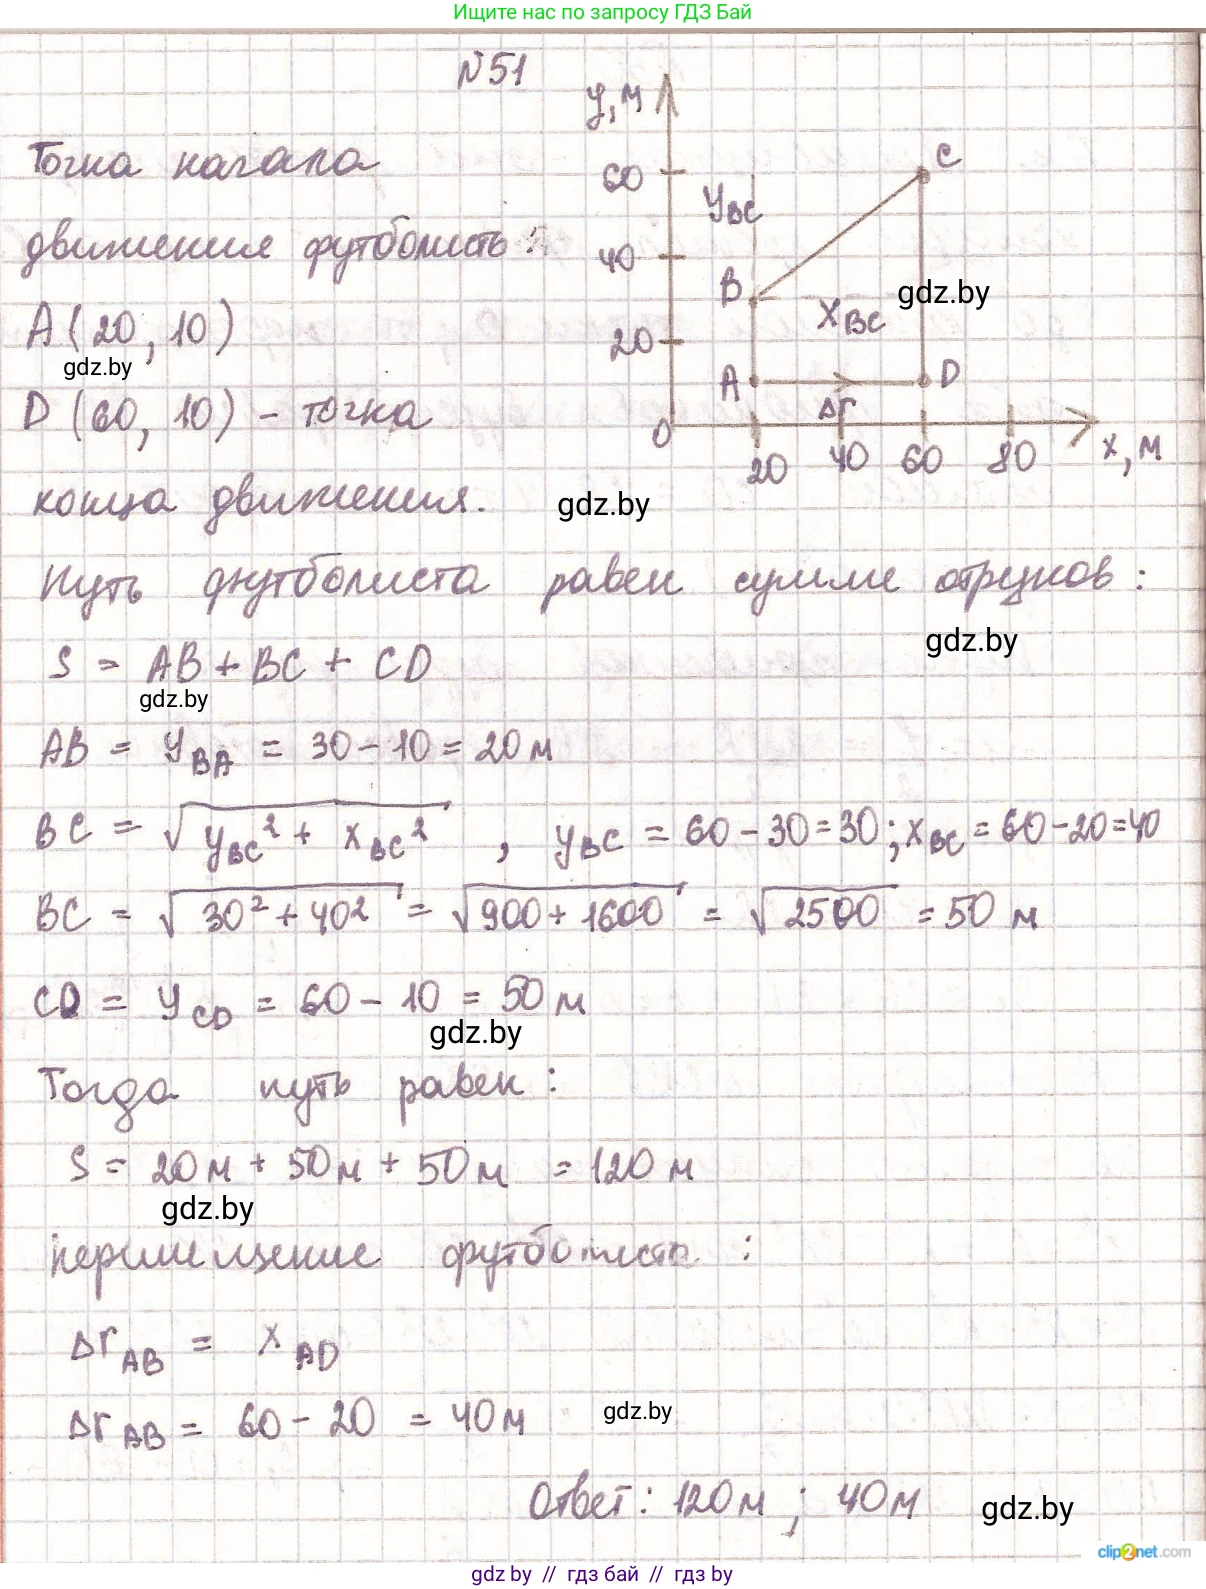 Ищите нас по запросу ГДЗ Бай
N51
Точка начала
движения футболисть:
A (20, 10)
gdz.by
D (60, 10) - точка
конца движения.
y, м
60
40
20
0
20 40 60 80
x, м
A
B
C
D
yBC
xBC
Δr
gdz.by
gdz.by
Путь футболиста равен сумме отрезков:
gdz.by
S = AB + BC + CD
gdz.by
AB = yBA = 30 - 10 = 20 м
BC = √(yBC² + xBC²) , yBC = 60 - 30 = 30; xBC = 60 - 20 = 40
BC = √(30² + 40²) = √(900 + 1600) = √2500 = 50 м
CD = yCD = 60 - 10 = 50 м
gdz.by
Тогда путь равен:
S = 20 м + 50 м + 50 м = 120 м
gdz.by
Перемещение футболиста :
ΔrAB = xAD
ΔrAB = 60 - 20 = 40 м
gdz.by
Ответ: 120 м ; 40 м
gdz.by
clip2net.com
gdz by // гдз бай // гдз by